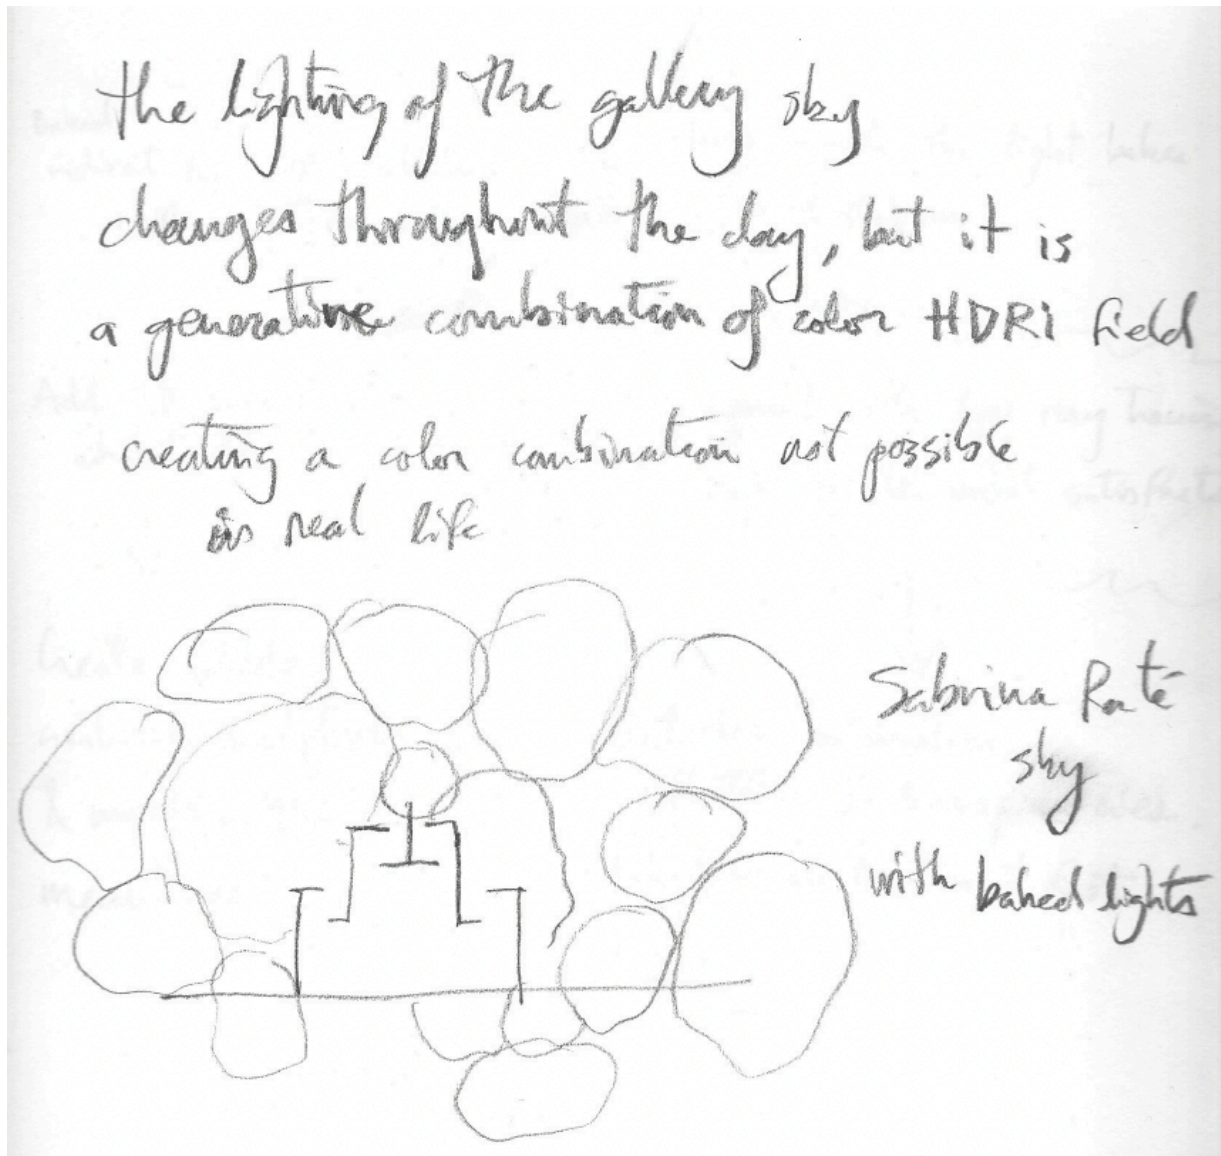 the lighting of the gallery sky
changes throughout the day, but it is
a generative combination of color HDRi field
creating a color combination not possible
in real life
Sabrina Raté
sky
with baked lights